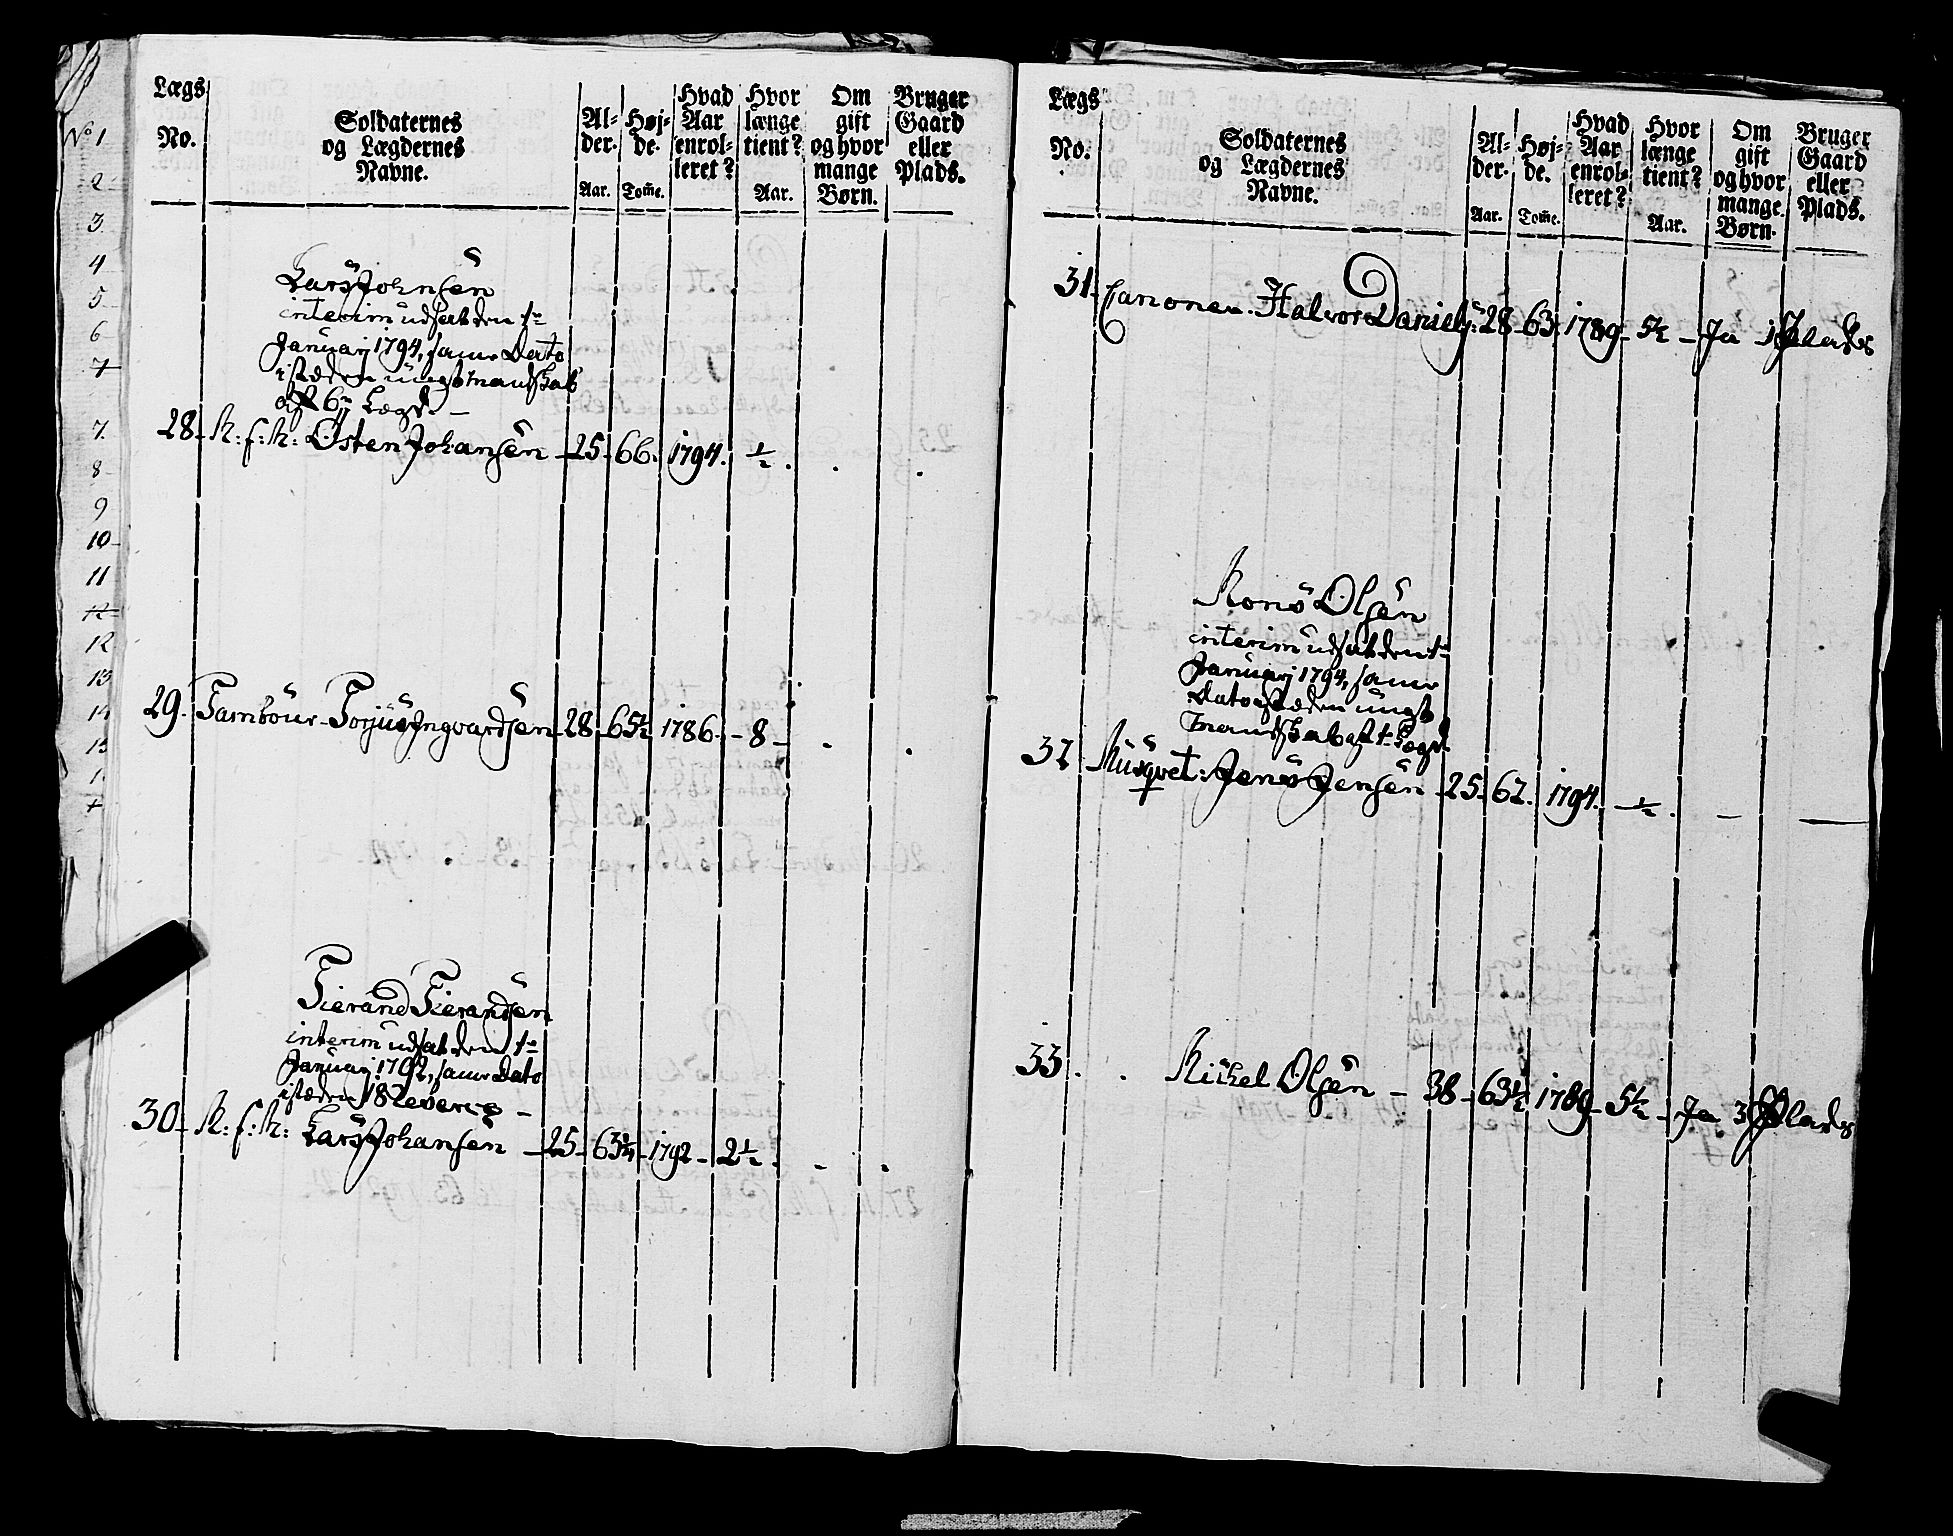 Lægs
No.
Soldaternes
og Lægdernes
Navne.
Al-
der.
Aar.
Høj-
de.
Tom̃e.
Hvad
Aar
enrol-
leret?
Hvor
længe
tient?
Aar.
Om
gift
og hvor
mange
Børn.
Bruger
Gaard
eller
Plads.
No 1
2
3
4
5
6
7
8
9
10
11
12
13
14
15
Lars Johnsen
interim udsat den 1te
Januarj 1794, samme Dato
isteden ungt mandskab
aft 6te Lægd. —
28. N: f: N: Østen Johansen — 25. 66. 1794. ½ . . .
29. Tambour Torjus Ingvardsen 28. 65½ 1786. - 8 - . .
Tierand Tierandsen
interim udsat den 1te
Januarj 1792, samme Dato
isteden 18
30. N: f: N: Lars Johansen — 25. 63¼ 1792 - 2½ . . .
Lægs
No.
Soldaternes
og Lægdernes
Navne.
Al-
der.
Aar.
Høj-
de.
Tom̃e.
Hvad
Aar
enrol-
leret?
Hvor
længe
tient?
Aar.
Om
gift
og hvor
mange
Børn.
Bruger
Gaard
eller
Plads.
31. Canoneer. Halvor Daniels: 28. 63. 1789. 5½ - Ja 1 Plads
Mons Olsen
interim udsat den 1te
Januarj 1794, samme
Dato isteden ungt
mandskab aft 1te Lægd.
32 Musqvet: Jens Jensen - 25. 62. 1794. - ½ . - —
33. . Mikel Olsen - 38 - 63½ 1789 - 5½ - Ja 3 Plads